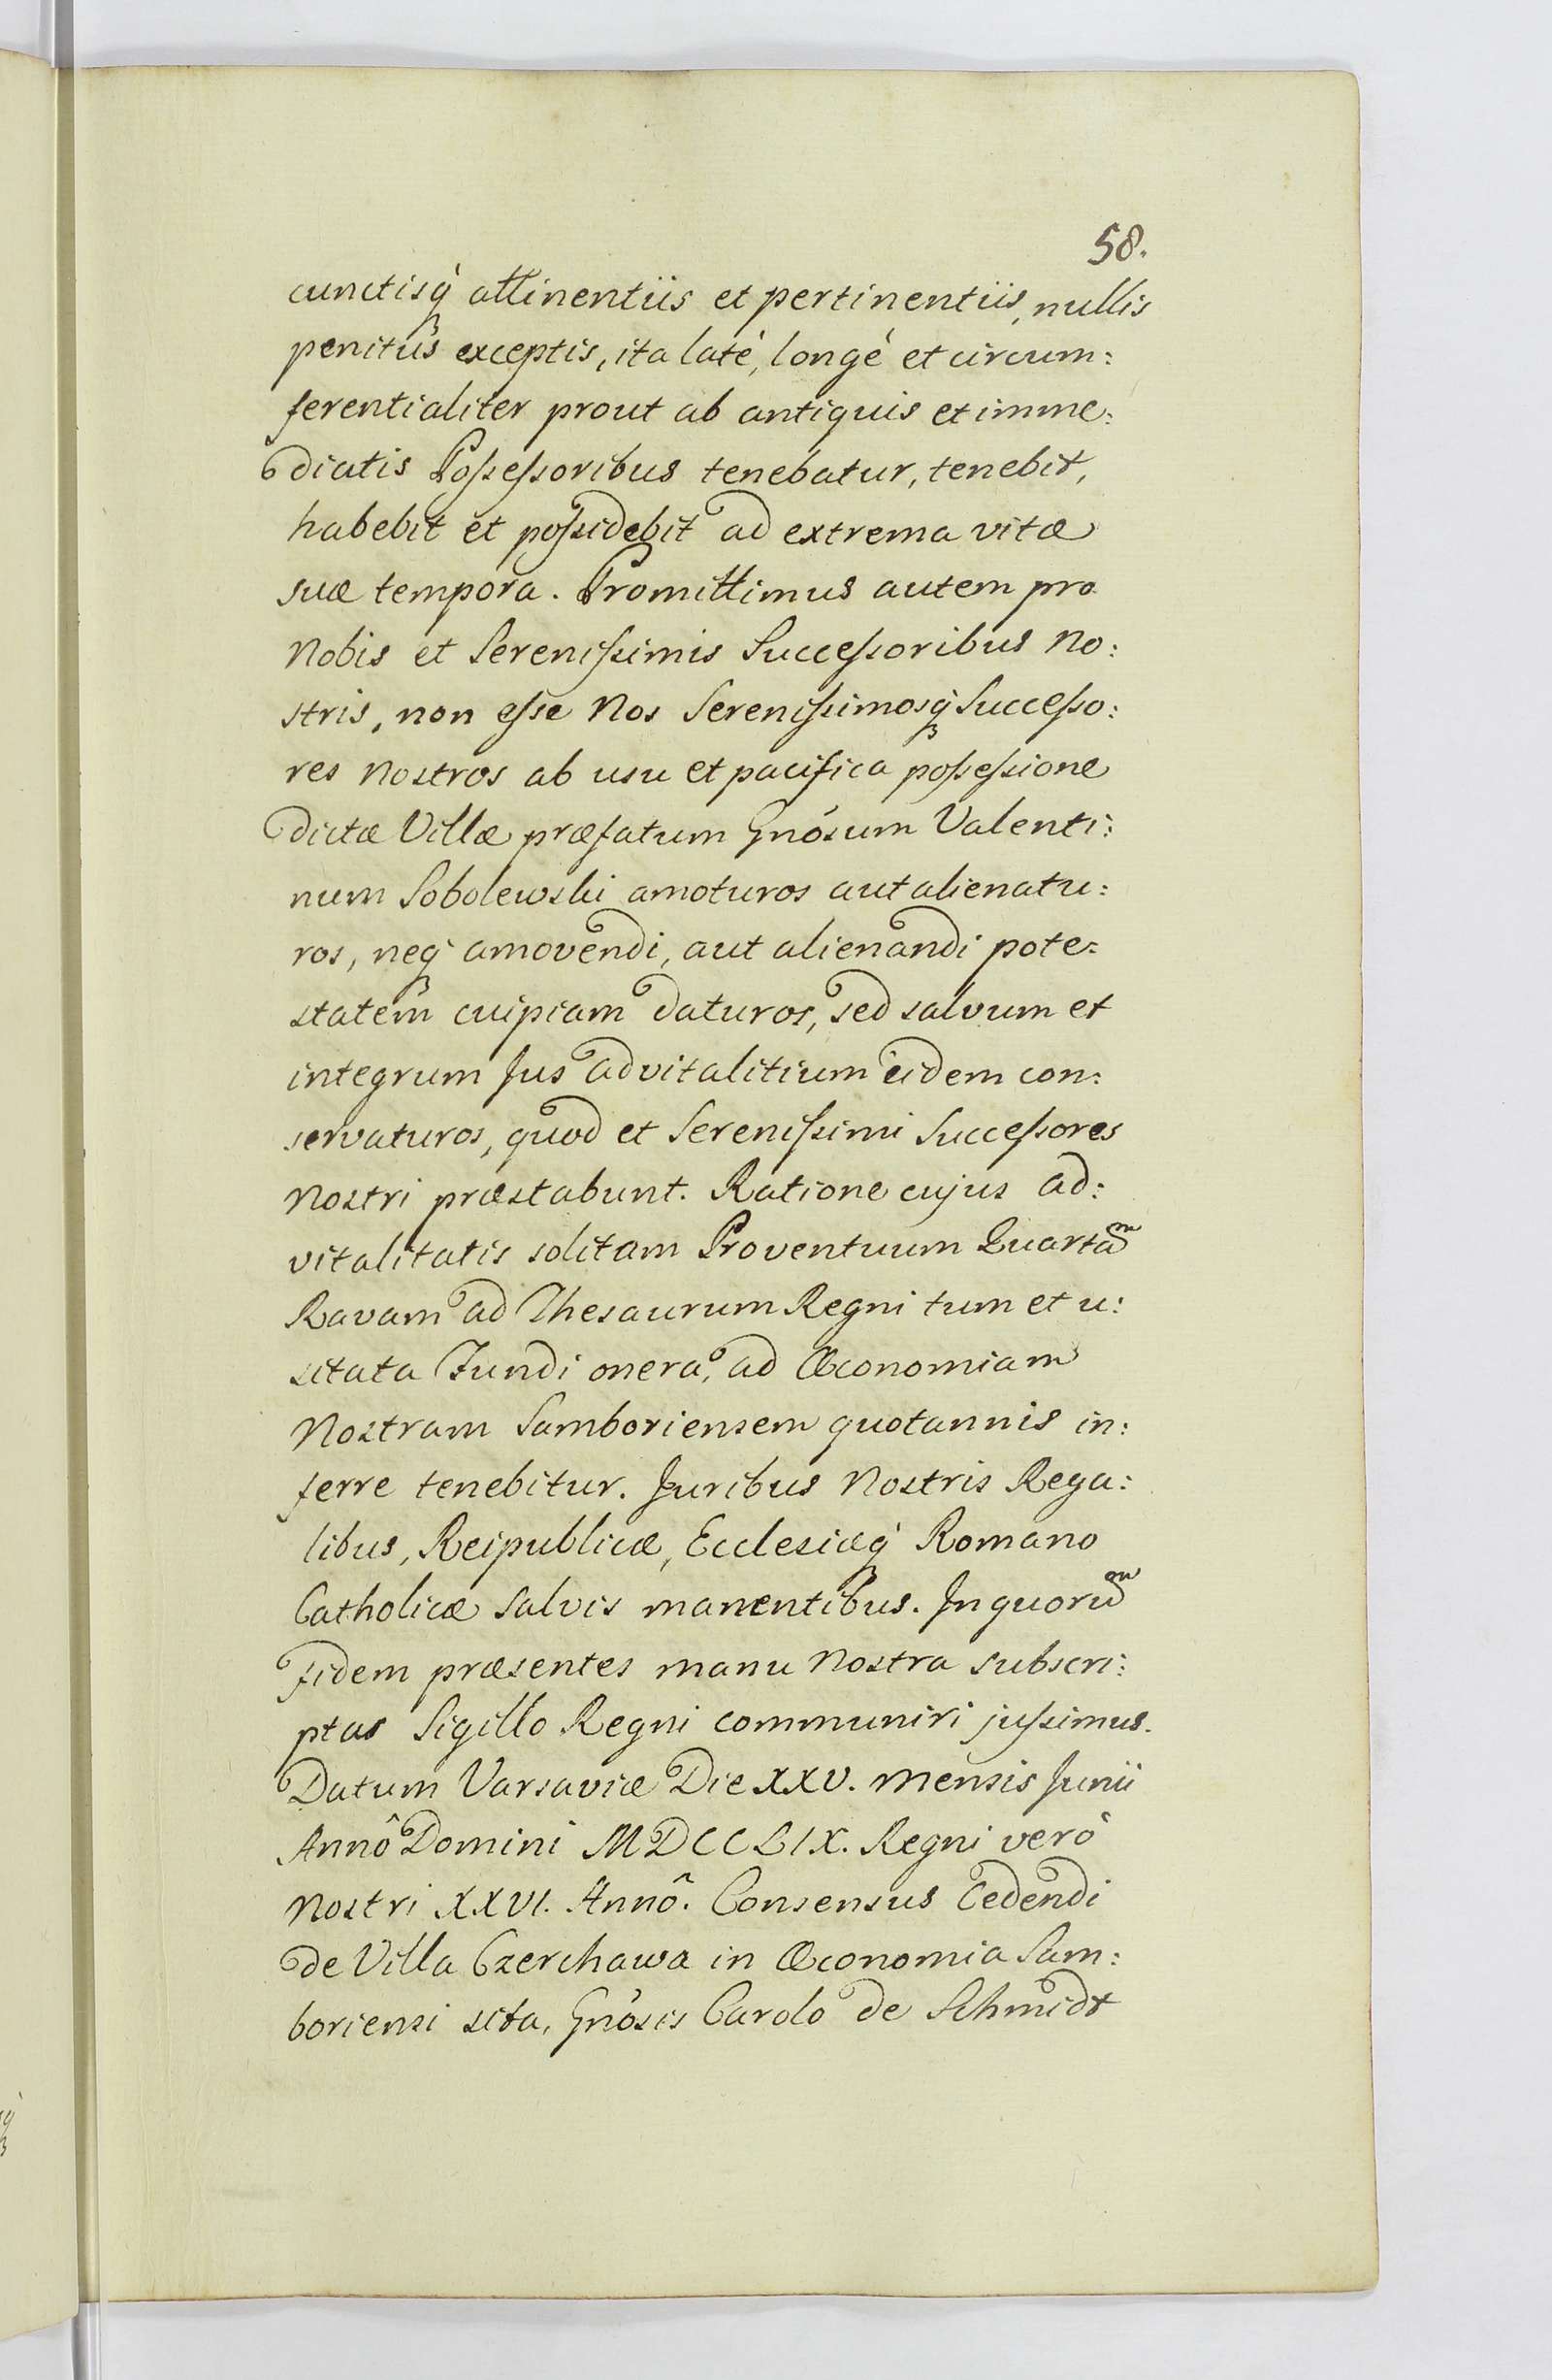 58.
cunctisq̀ attinentiis et pertinentiis, nullis
penitùs exceptis, ita latè, longè et circum:
ferentialiter prout ab antiquis et imme:
diatis Possessoribus tenebatur, tenebit,
habebit et possidebit ad extrema vitæ
suæ tempora. Promittimus autem pro
Nobis et Serenissimis Successoribus No:
stris, non esse Nos Serenissimosq̀ Successo:
res Nostros ab usu et pacifica possessione
dictæ Villæ præfatum Gnôsum Valenti:
num Sobolewski amoturos aut alienatu:
ros, neq̀ amovendi, aut alienandi pote:
statem cuipiam daturos, sed salvum et
integrum Jus advitalitium eidem con:
servaturos, quod et Serenissimi Successores
Nostri præstabunt. Ratione cujus ad:
vitalitatis solitam Proventuum Quartam
Ravam ad Thesaurum Regni tum et u:
sitata Fundi onera, ad Œconomiam
Nostram Samboriensem quotannis in:
ferre tenebitur. Juribus Nostris Rega:
libus, Reipublicæ, Ecclesiæq̀ Romano
Catholicæ salvis manentibus. In quorum
fidem præsentes manu Nostra subscri:
ptas Sigillo Regni communiri jussimus.
Datum Varsaviæ Die XXV. Mensis Junii
Annô Domini MDCCLIX. Regni verò
Nostri XXVI. Annô. Consensus Cedendi
de Villa Czerchawa in Œconomia Sam:
boriensi sita, Gnôsis Carolo de Schmidt